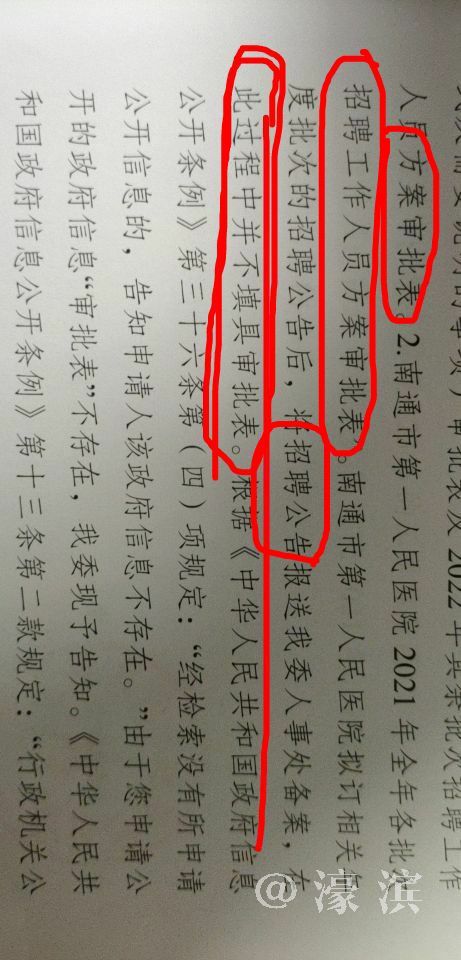 需要说明的事项）审批表及 2022 年其余批次招聘工作
人员方案审批表。2.南通市第一人民医院 2021 年全年各批次
招聘工作人员方案审批表”。南通市第一人民医院拟订相关年
度批次的招聘公告后，将招聘公告报送我委人事处备案，在
此过程中并不填具审批表。根据《中华人民共和国政府信息
公开条例》第三十六条第（四）项规定：“经检索没有所申请
公开信息的，告知申请人该政府信息不存在。”由于您申请公
开的政府信息“审批表”不存在，我委现予告知。《中华人民共
和国政府信息公开条例》第十三条第二款规定：“行政机关公
@濠滨